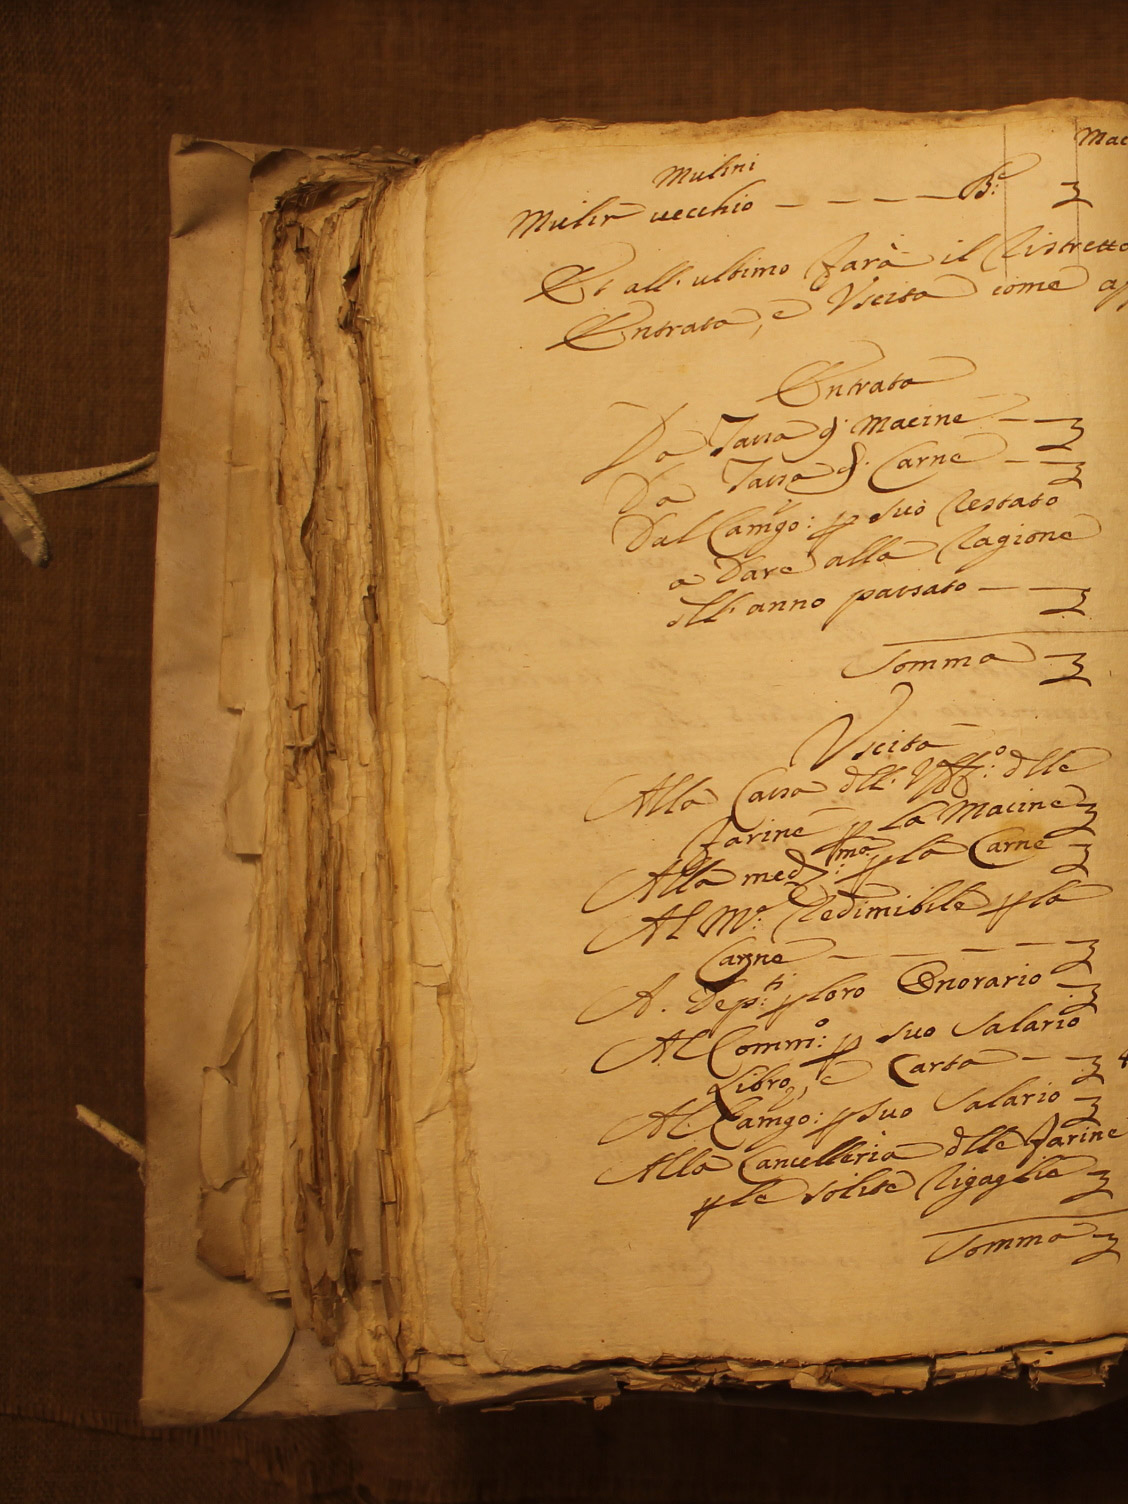 Mulini Mac
Mulin vecchio - - - - - B.e
Et all' ultimo farà il ristretto
Entrata, e Vscita come ap
Entrata
Da Tassa d. Macine - -
Da Tassa d. Carne - -
Dal Camgo: p suo restato
a dare alla ragione
dll' anno passato - -
Somma
Vscita
Alla Cassa dll' Uff.o dlle
farine p la Macine
Alla med.ma: p la Carne
Al M.e redimibile p la
Carne - - - -
A. dep.ti p loro Onorario -
Al Comm.o: p suo Salario
Libro, e Carta - -
Al Camgo: p suo Salario -
Alla Cancelleria dlle farine
p le solite rigaglie -
Somma